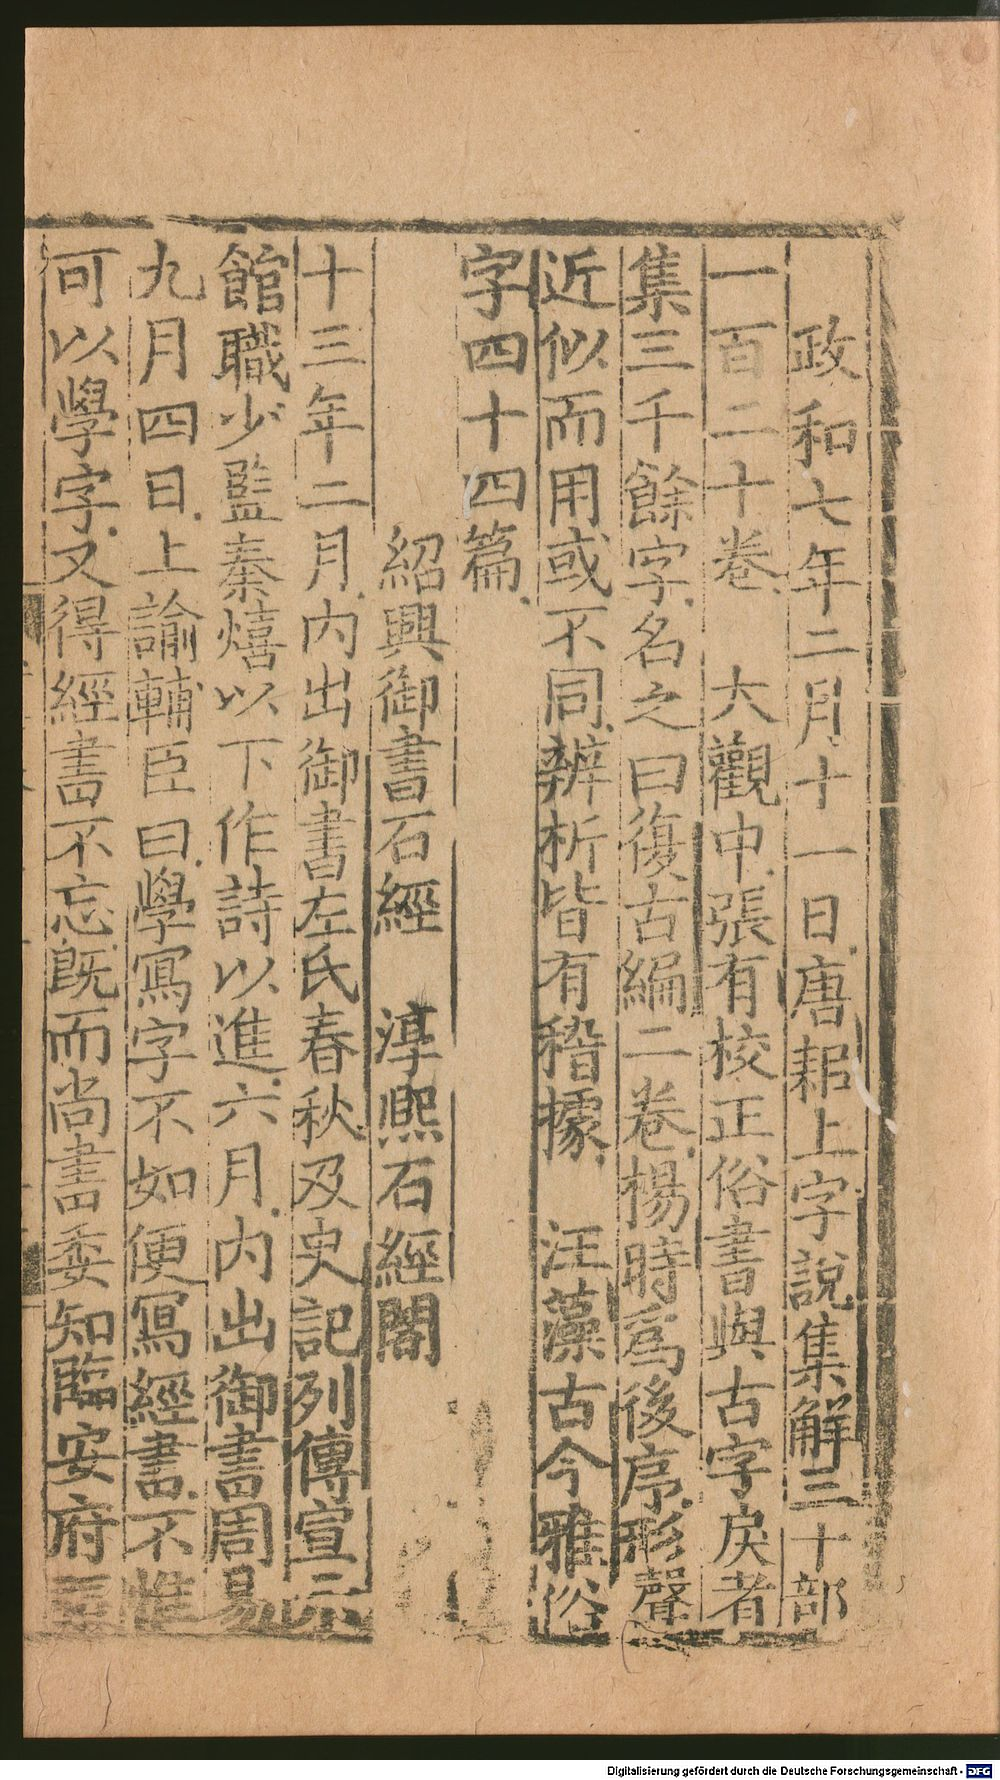 政和七年二月十一日唐耜上字說集解三十部
一百二十卷　大觀中張有校正俗書與古字戾者
集三千餘字名之曰復古編二卷楊時爲後序形聲
近似而用或不同辨析皆有稽據　汪藻古今雅俗
字四十四篇
紹興御書石經　淳熙石經閣
十三年二月內出御書左氏春秋及史記列傳宣示
館職少監秦熺以下作詩以進六月內出御書周易
九月四日上諭輔臣曰學寫字不如便寫經書不惟
可以學字又得經書不忘既而尚書委知臨安府
Digitalisierung gefördert durch die Deutsche Forschungsgemeinschaft - DFG